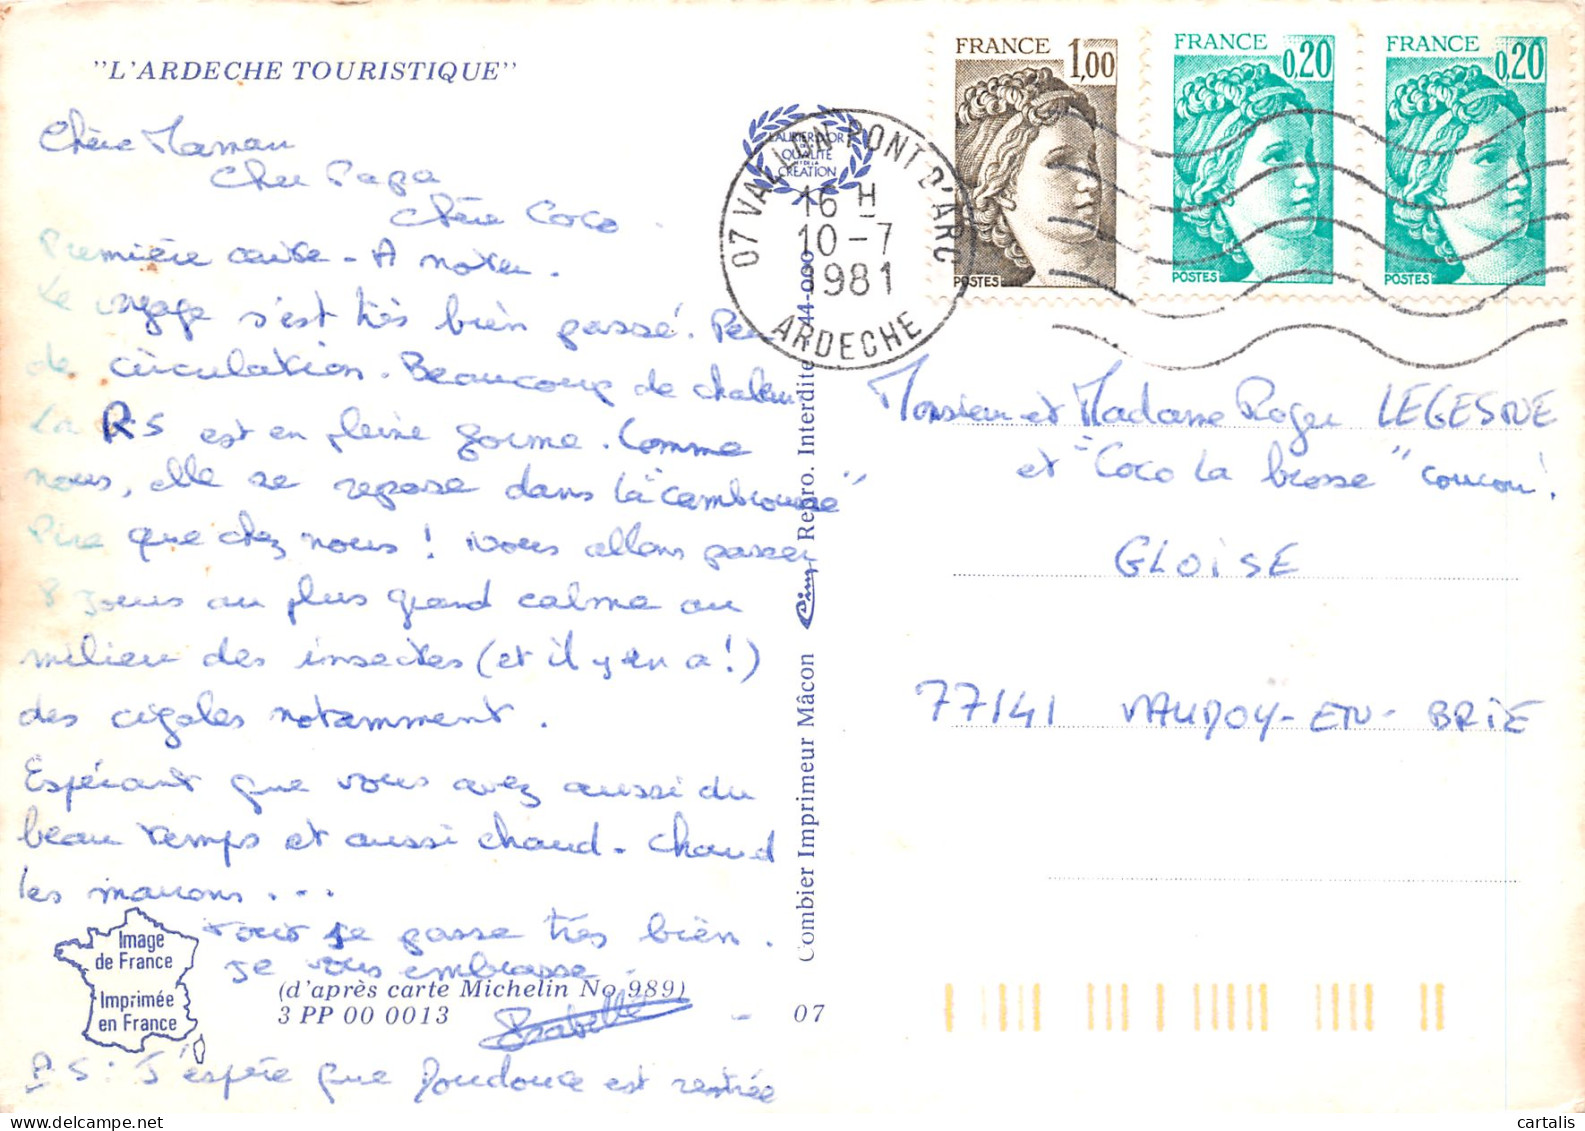 "L'ARDECHE TOURISTIQUE"
Chère Maman
Cher Papa
Chère Coco.
Première carte - A noter.
Le voyage s'est très bien passé. Peu
de circulation. Beaucoup de chaleur
La R5 est en pleine forme. Comme
nous, elle se repose dans la "cambrousse"
Pire que chez nous ! Nous allons passer
8 jours au plus grand calme au
milieu des insectes (et il y en a !)
des cigales notamment.
Espérant que vous avez aussi du
beau temps et aussi chaud - Chaud
les marrons . . .
Tout se passe très bien.
Je vous embrasse.
Isabelle
PS : J'espère que Doudouce est rentrée
Image
de France
Imprimée
en France
(d'après carte Michelin No 989)
3 PP 00 0013
07
Combier Imprimeur Mâcon
Cim
Repro. Interdite
44-000
LAURIER D'OR
DE LA
QUALITE
ET DE LA
CREATION
07 VALLON PONT D'ARC
16 H
10-7
1981
ARDECHE
FRANCE 1,00
POSTES
FRANCE 0,20
POSTES
FRANCE 0,20
POSTES
Monsieur et Madame Roger LEGESNE
et "Coco la brosse" coucou !
GLOISE
77141 VAUDOY-EN-BRIE
cartalis